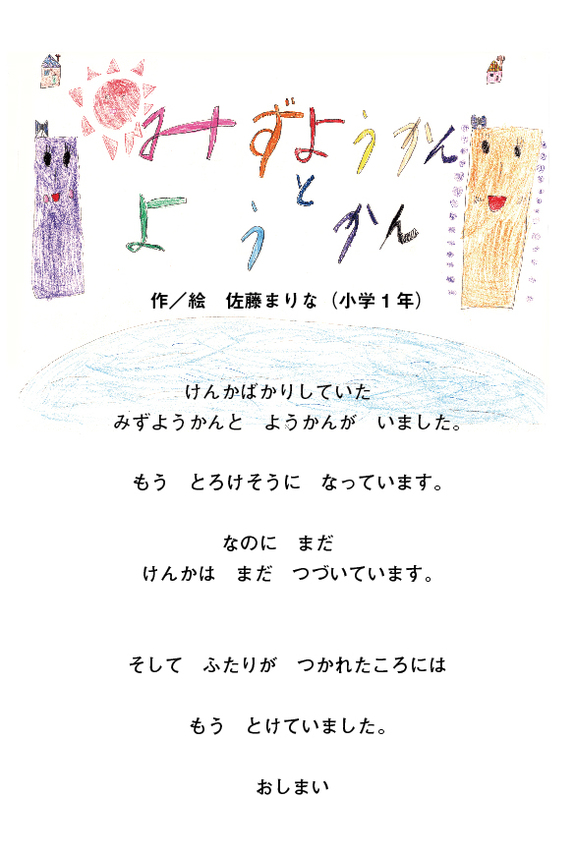 みずようかん
と
ようかん
作／絵　佐藤まりな（小学1年）
けんかばかりしていた
みずようかんと　ようかんが　いました。
もう　とろけそうに　なっています。
なのに　まだ
けんかは　まだ　つづいています。
そして　ふたりが　つかれたころには
もう　とけていました。
おしまい